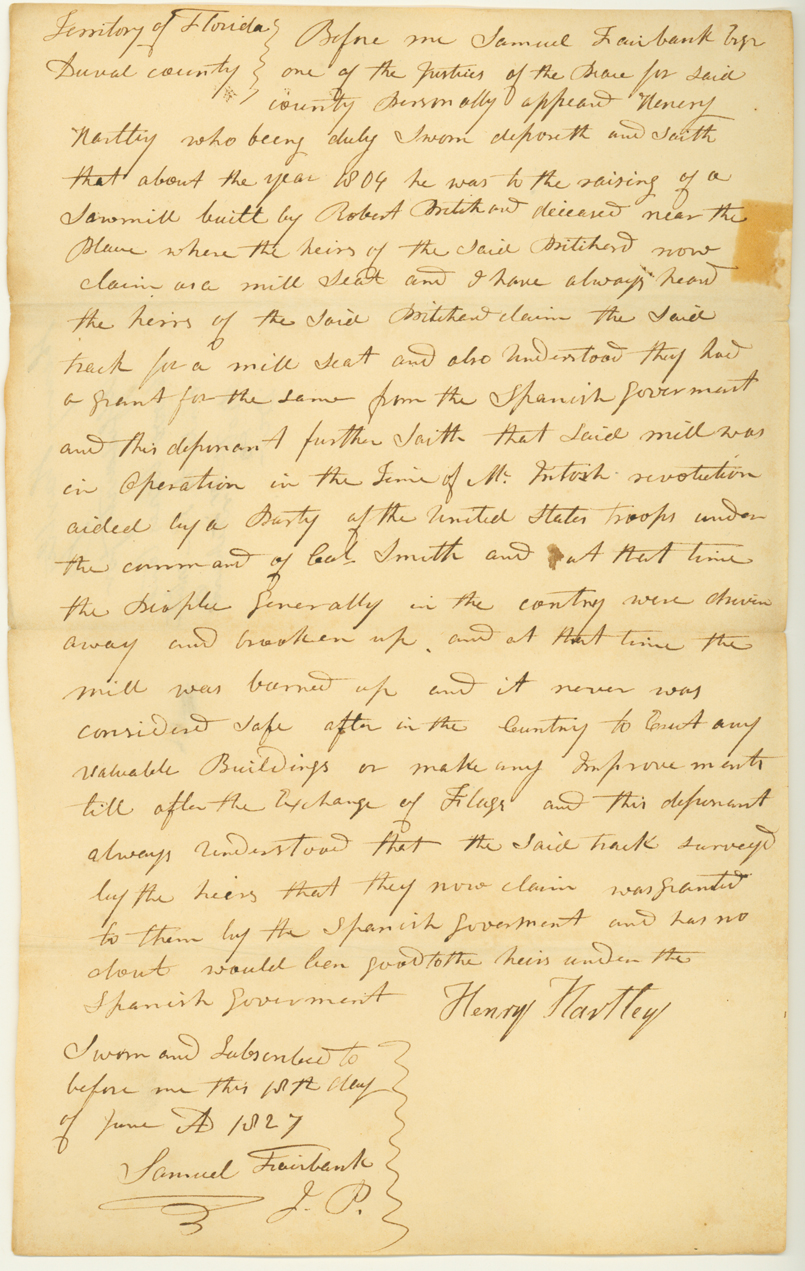 Territory of Florida
Duval county
Before me Samuel Fairbank Esqr
one of the Justices of the Peace for said
county Personally appeard Henery
Hartley who being duly Sworn deposeth and Saith
that about the year 1804 he was to the raising of a
Sawmill built by Robert Pritchard deceased near the
Place where the heirs of the said Pritchard now
claim as a mill Seat and I have always heard
the heirs of the said Pritchard claim the said
track for a mill seat and also Understood they had
a grant for the same from the Spanish Goverment
and this deponant further Saith that said mill was
in Operation in the Time of Mc Intosh revolution
aided by a Party of the United States troops under
the command of Col Smith and at that time
the People Generally in the contry were driven
away and brooken up and at that time the
mill was burned up and it never was
considered safe after in the Cuntry to Erect any
valuable Buildings or make any Improvements
till after the Exchange of Flags and this deponant
always Understood that the said track survey'd
by the heirs that they now claim was granted
to them by the Spanish Goverment and has no
dout would ben good to the heirs under the
Spanish Goverment
Henry Hartley
Sworn and Subscribed to
before me this 18th day
of June AD 1827
Samuel Fairbank
J. P.